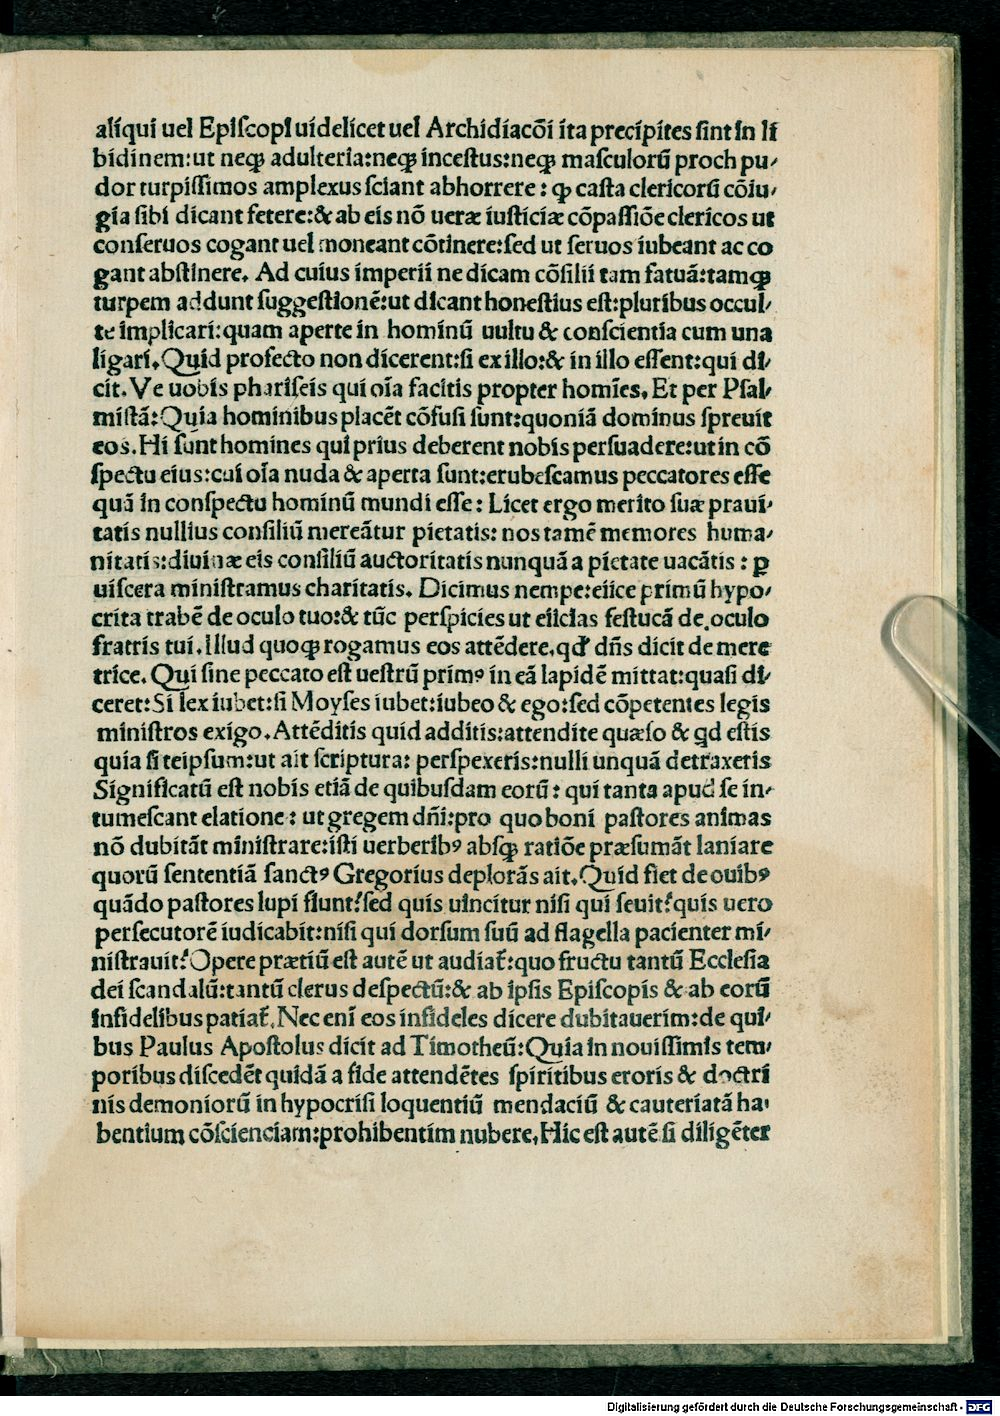 aliqui uel Epiſcopi uidelicet uel Archidiacōi ita precipites ſint in li
bidinem:ut neqꝫ adulteria:neqꝫ inceſtus:neqꝫ maſculorū proch pu⸗
dor turpiſſimos amplexus ſciant abhorrere: ꝙ caſta clericorū cōiu⸗
gia ſibi dicant fetere:& ab eis nō ueræ iuſticiæ cōpaſſiōe clericos ut
conſeruos cogant uel moneant cōtinere:ſed ut ſeruos iubeant ac co
gant abſtinere. Ad cuius imperii ne dicam cōſilii tam fatuā:tamqꝫ
turpem addunt ſuggeſtionē:ut dicant honeſtius eſt:pluribus occul⸗
te implicari:quam aperte in hominū uultu & conſcientia cum una
ligari. Quid profecto non dicerent:ſi ex illo:& in illo eſſent:qui di⸗
cit. Ve uobis phariſeis qui oīa facitis propter homīes. Et per Pſal⸗
miſtā:Quia hominibus placēt cōfuſi ſunt:quoniā dominus ſpreuit
eos. Hi ſunt homines qui prius deberent nobis perſuadere:ut in cō
ſpectu eius:cui oīa nuda & aperta ſunt:erubeſcamus peccatores eſſe
quā in conſpectu hominū mundi eſſe: Licet ergo merito ſuæ praui⸗
tatis nullius conſiliū mereātur pietatis: nos tamē memores huma⸗
nitatis:diuinæ eis conſiliū auctoritatis nunquā a pietate uacātis : ꝑ
uiſcera miniſtramus charitatis. Dicimus nempe:eiice primū hypo⸗
crita trabē de oculo tuo:& tūc perſpicies ut eiicias feſtucā de oculo
fratris tui. Illud quoqꝫ rogamus eos attēdere.qđ dn̄s dicit de mere
trice. Qui ſine peccato eſt ueſtrū primꝰ in eā lapidē mittat:quaſi di⸗
ceret:Si lex iubet:ſi Moyſes iubet:iubeo & ego:ſed cōpetentes legis
miniſtros exigo. Attēditis quid additis:attendite quæſo & qd eſtis
quia ſi teipſum:ut ait ſcriptura: perſpexeris:nulli unquā detraxeris
Significatū eſt nobis etiā de quibuſdam eorū: qui tanta apud ſe in⸗
tumeſcant elatione: ut gregem dn̄i:pro quo boni paſtores animas
nō dubitāt miniſtrare:iſti uerberibꝰ abſqꝫ ratiōe præſumāt laniare
quorū ſententiā ſanctꝰ Gregorius deplorās ait. Quid fiet de ouibꝰ
quādo paſtores lupi fiunt?ſed quis uincitur niſi qui ſeuit?quis uero
perſecutorē iudicabit:niſi qui dorſum ſuū ad flagella pacienter mi⸗
niſtrauit?Opere prætiū eſt autē ut audiat̄:quo fructu tantū Eccleſia
dei ſcandalū:tantū clerus deſpectū:& ab ipſis Epiſcopis & ab eorū
infidelibus patiat̄. Nec enī eos infideles dicere dubitauerim:de qui⸗
bus Paulus Apoſtolus dicit ad Timotheū:Quia in nouiſſimis tem⸗
poribus diſcedēt quidā a fide attendētes ſpiritibus eroris & doctri
nis demoniorū in hypocriſi loquentiū mendaciū & cauteriatā ha⸗
bentium cōſcienciam:prohibentim nubere. Hic eſt autē ſi diligēter
Digitalisierung gefördert durch die Deutsche Forschungsgemeinschaft - DFG